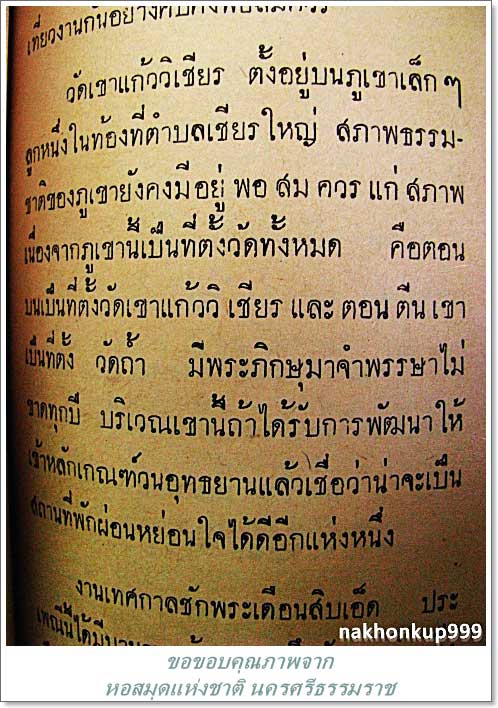 เที่ยวงานกันอย่างคับคั่งพอสมควร
วัดเขาแก้ววิเชียร ตั้งอยู่บนภูเขาเล็ก ๆ
ลูกหนึ่งในท้องที่ตำบลเชียรใหญ่ สภาพธรรม-
ชาติของภูเขายังคงมีอยู่ พอ สม ควร แก่ สภาพ
เนื่องจากภูเขานี้เป็นที่ตั้งวัดทั้งหมด คือตอน
บนเป็นที่ตั้งวัดเขาแก้ววิ เชียร และ ตอน ตีน เขา
เป็นที่ตั้ง วัดถ้ำ มีพระภิกษุมาจำพรรษาไม่
ขาดทุกปี บริเวณเขานี้ถ้าได้รับการพัฒนาให้
เข้าหลักเกณฑ์วนอุทธยานแล้วเชื่อว่าน่าจะเป็น
สถานที่พักผ่อนหย่อนใจได้ดีอีกแห่งหนึ่ง
งานเทศกาลชักพระเดือนสิบเอ็ด ประ
เพณีนี้ได้มี
nakhonkup999
ขอขอบคุณภาพจาก
หอสมุดแห่งชาติ นครศรีธรรมราช